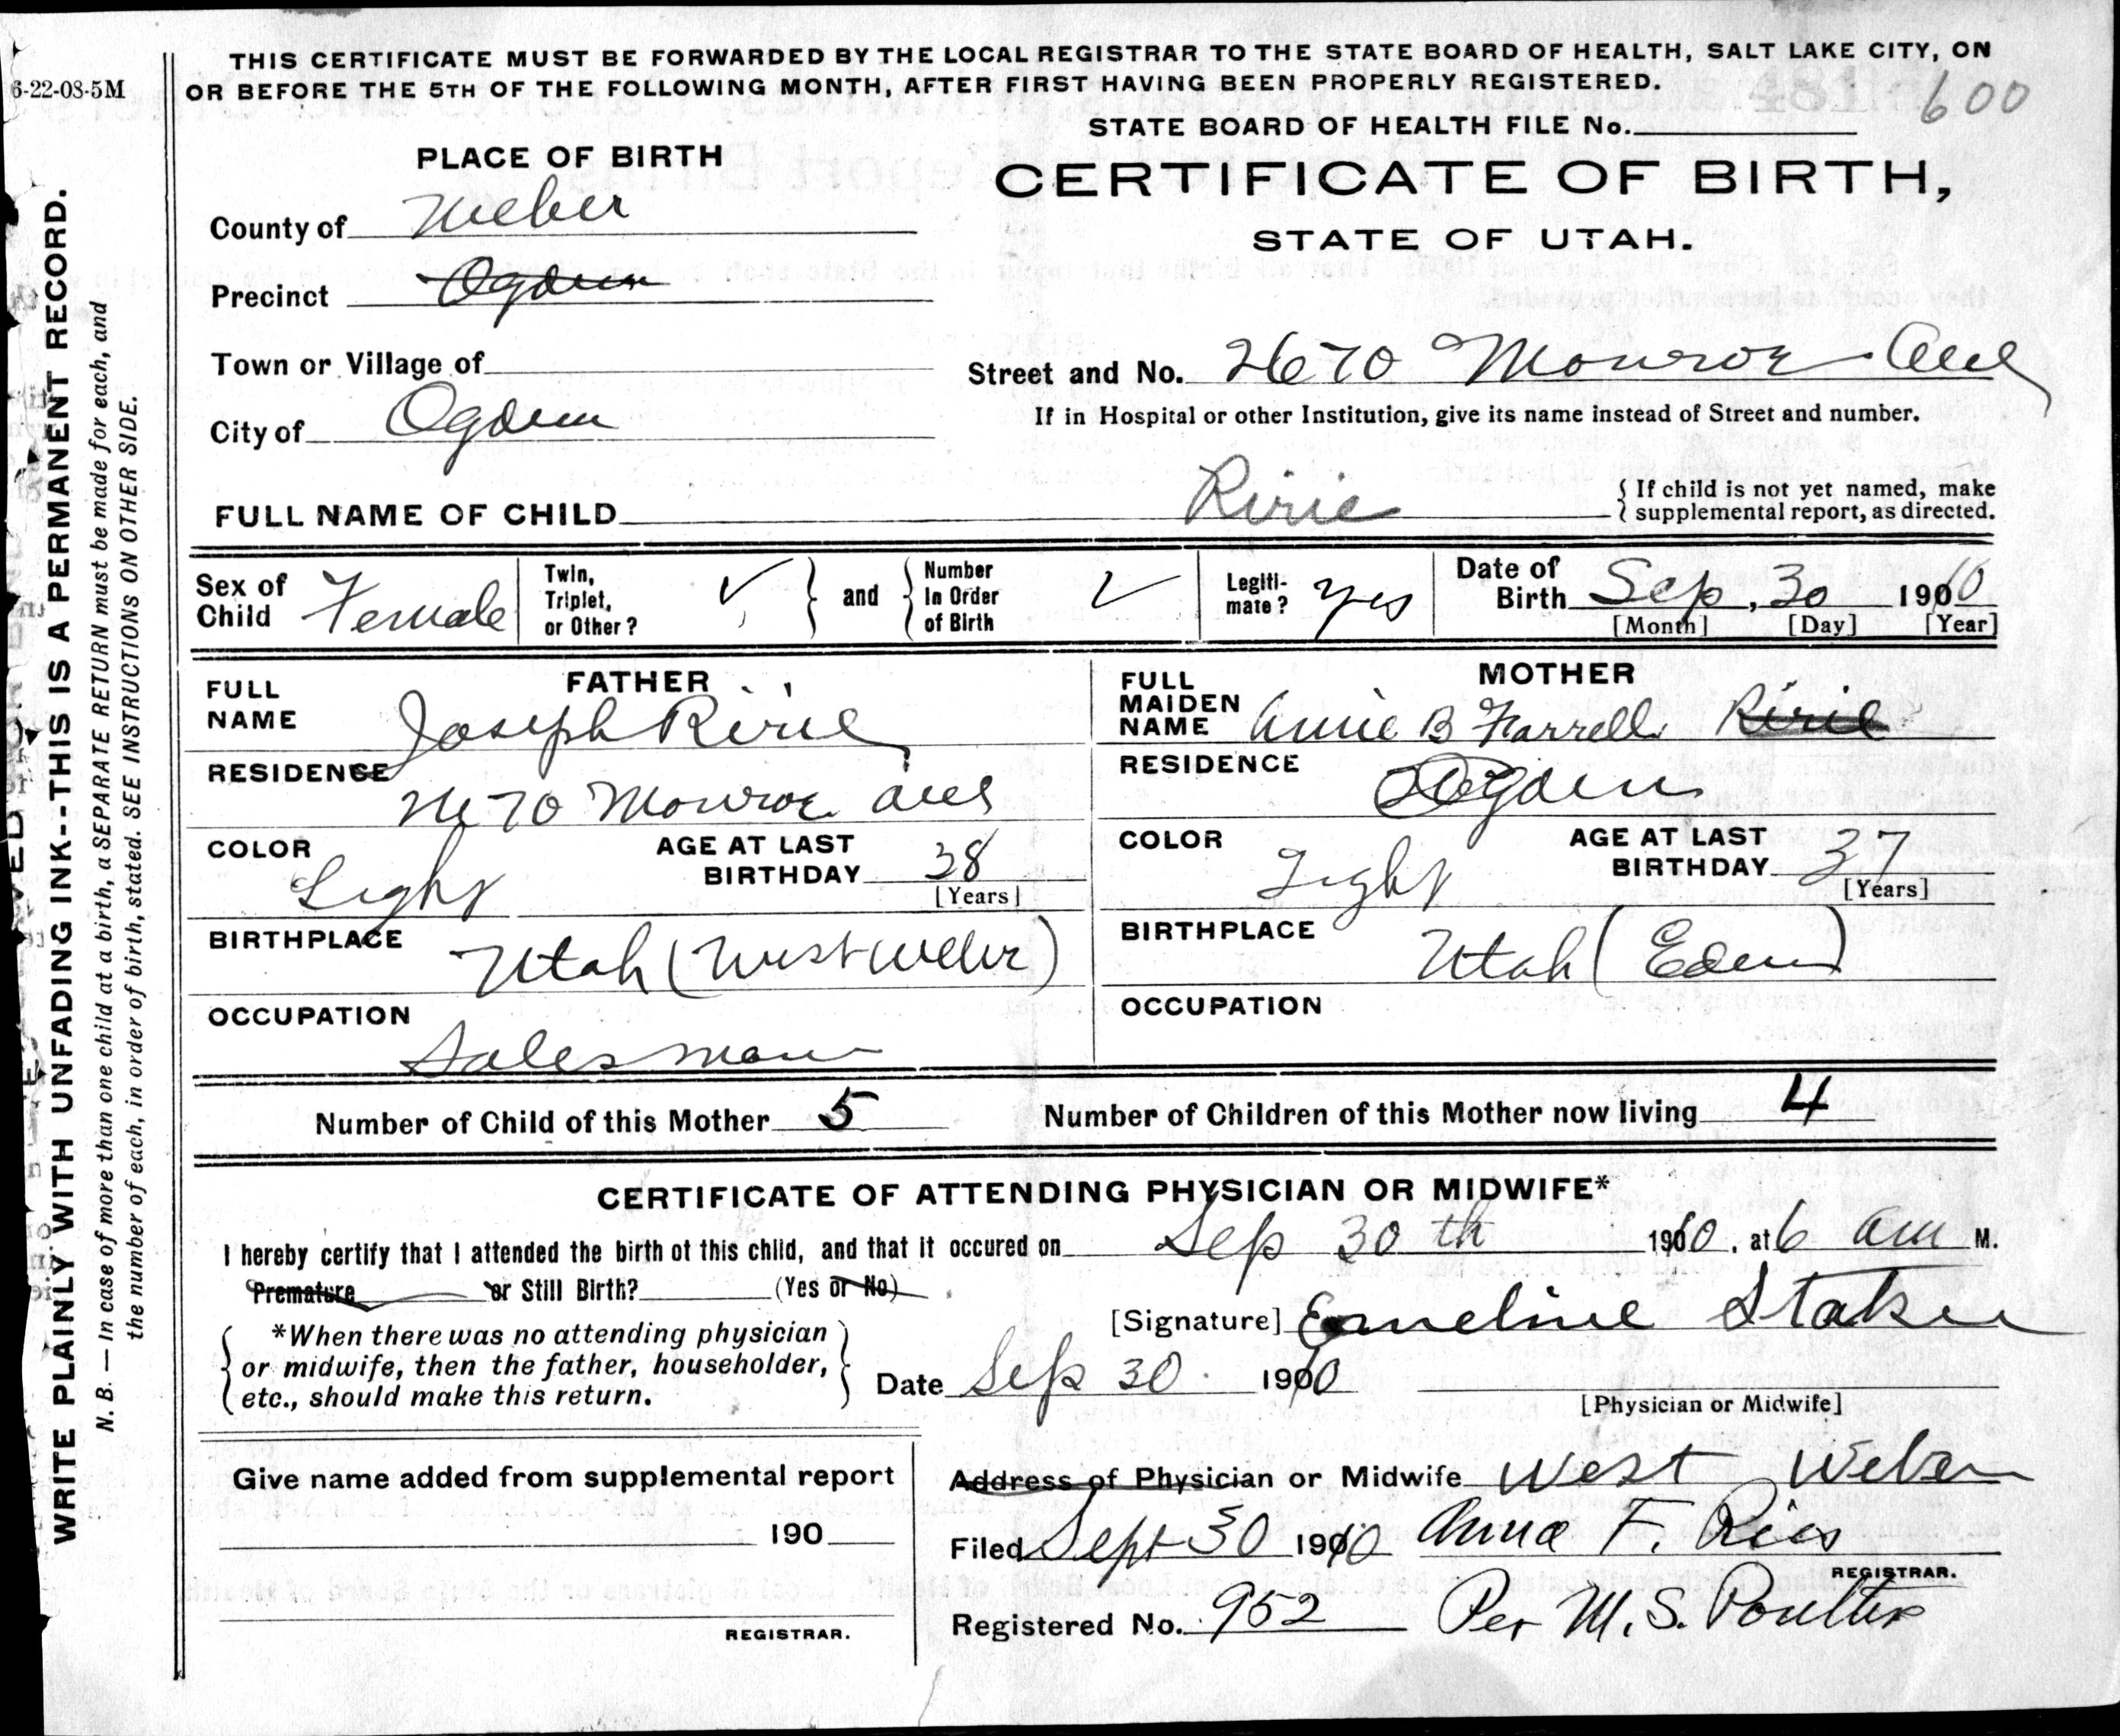 THIS CERTIFICATE MUST BE FORWARDED BY THE LOCAL REGISTRAR TO THE STATE BOARD OF HEALTH, SALT LAKE CITY, ON
OR BEFORE THE 5TH OF THE FOLLOWING MONTH, AFTER FIRST HAVING BEEN PROPERLY REGISTERED.
6-22-08-5M
600
STATE BOARD OF HEALTH FILE No.
PLACE OF BIRTH
CERTIFICATE OF BIRTH,
STATE OF UTAH.
County of Weber
Precinct Ogden
Town or Village of
Street and No. 2670 Monroe Ave
If in Hospital or other Institution, give its name instead of Street and number.
City of Ogden
FULL NAME OF CHILD Ririe
{ If child is not yet named, make
supplemental report, as directed.
Sex of Child Female
Twin, Triplet, or Other? ✓ } and { Number In Order of Birth ✓
Legiti-mate? yes
Date of Birth Sep, 30 1910
[Month] [Day] [Year]
FATHER
FULL NAME Joseph Ririe
RESIDENCE 2670 Monroe ave
COLOR Light
AGE AT LAST BIRTHDAY 38 [Years]
BIRTHPLACE Utah (West Weber)
OCCUPATION Salesman
MOTHER
FULL MAIDEN NAME Annie B Farrell Ririe
RESIDENCE Ogden
COLOR Light
AGE AT LAST BIRTHDAY 37 [Years]
BIRTHPLACE Utah (Eden)
OCCUPATION
Number of Child of this Mother 5 Number of Children of this Mother now living 4
CERTIFICATE OF ATTENDING PHYSICIAN OR MIDWIFE*
I hereby certify that I attended the birth of this child, and that it occured on Sep 30th 1910, at 6 am M.
Premature or Still Birth? (Yes or No)
[Signature] Emeline Staker
{ *When there was no attending physician
or midwife, then the father, householder,
etc., should make this return. }
Date Sep 30 1910
[Physician or Midwife]
Give name added from supplemental report
190
REGISTRAR.
Address of Physician or Midwife West Weber
Filed Sept 30 1910 Anna F. Ries
REGISTRAR.
Registered No. 952 Per M. S. Poulter
WRITE PLAINLY WITH UNFADING INK--THIS IS A PERMANENT RECORD.
N. B. — In case of more than one child at a birth, a SEPARATE RETURN must be made for each, and
the number of each, in order of birth, stated. SEE INSTRUCTIONS ON OTHER SIDE.